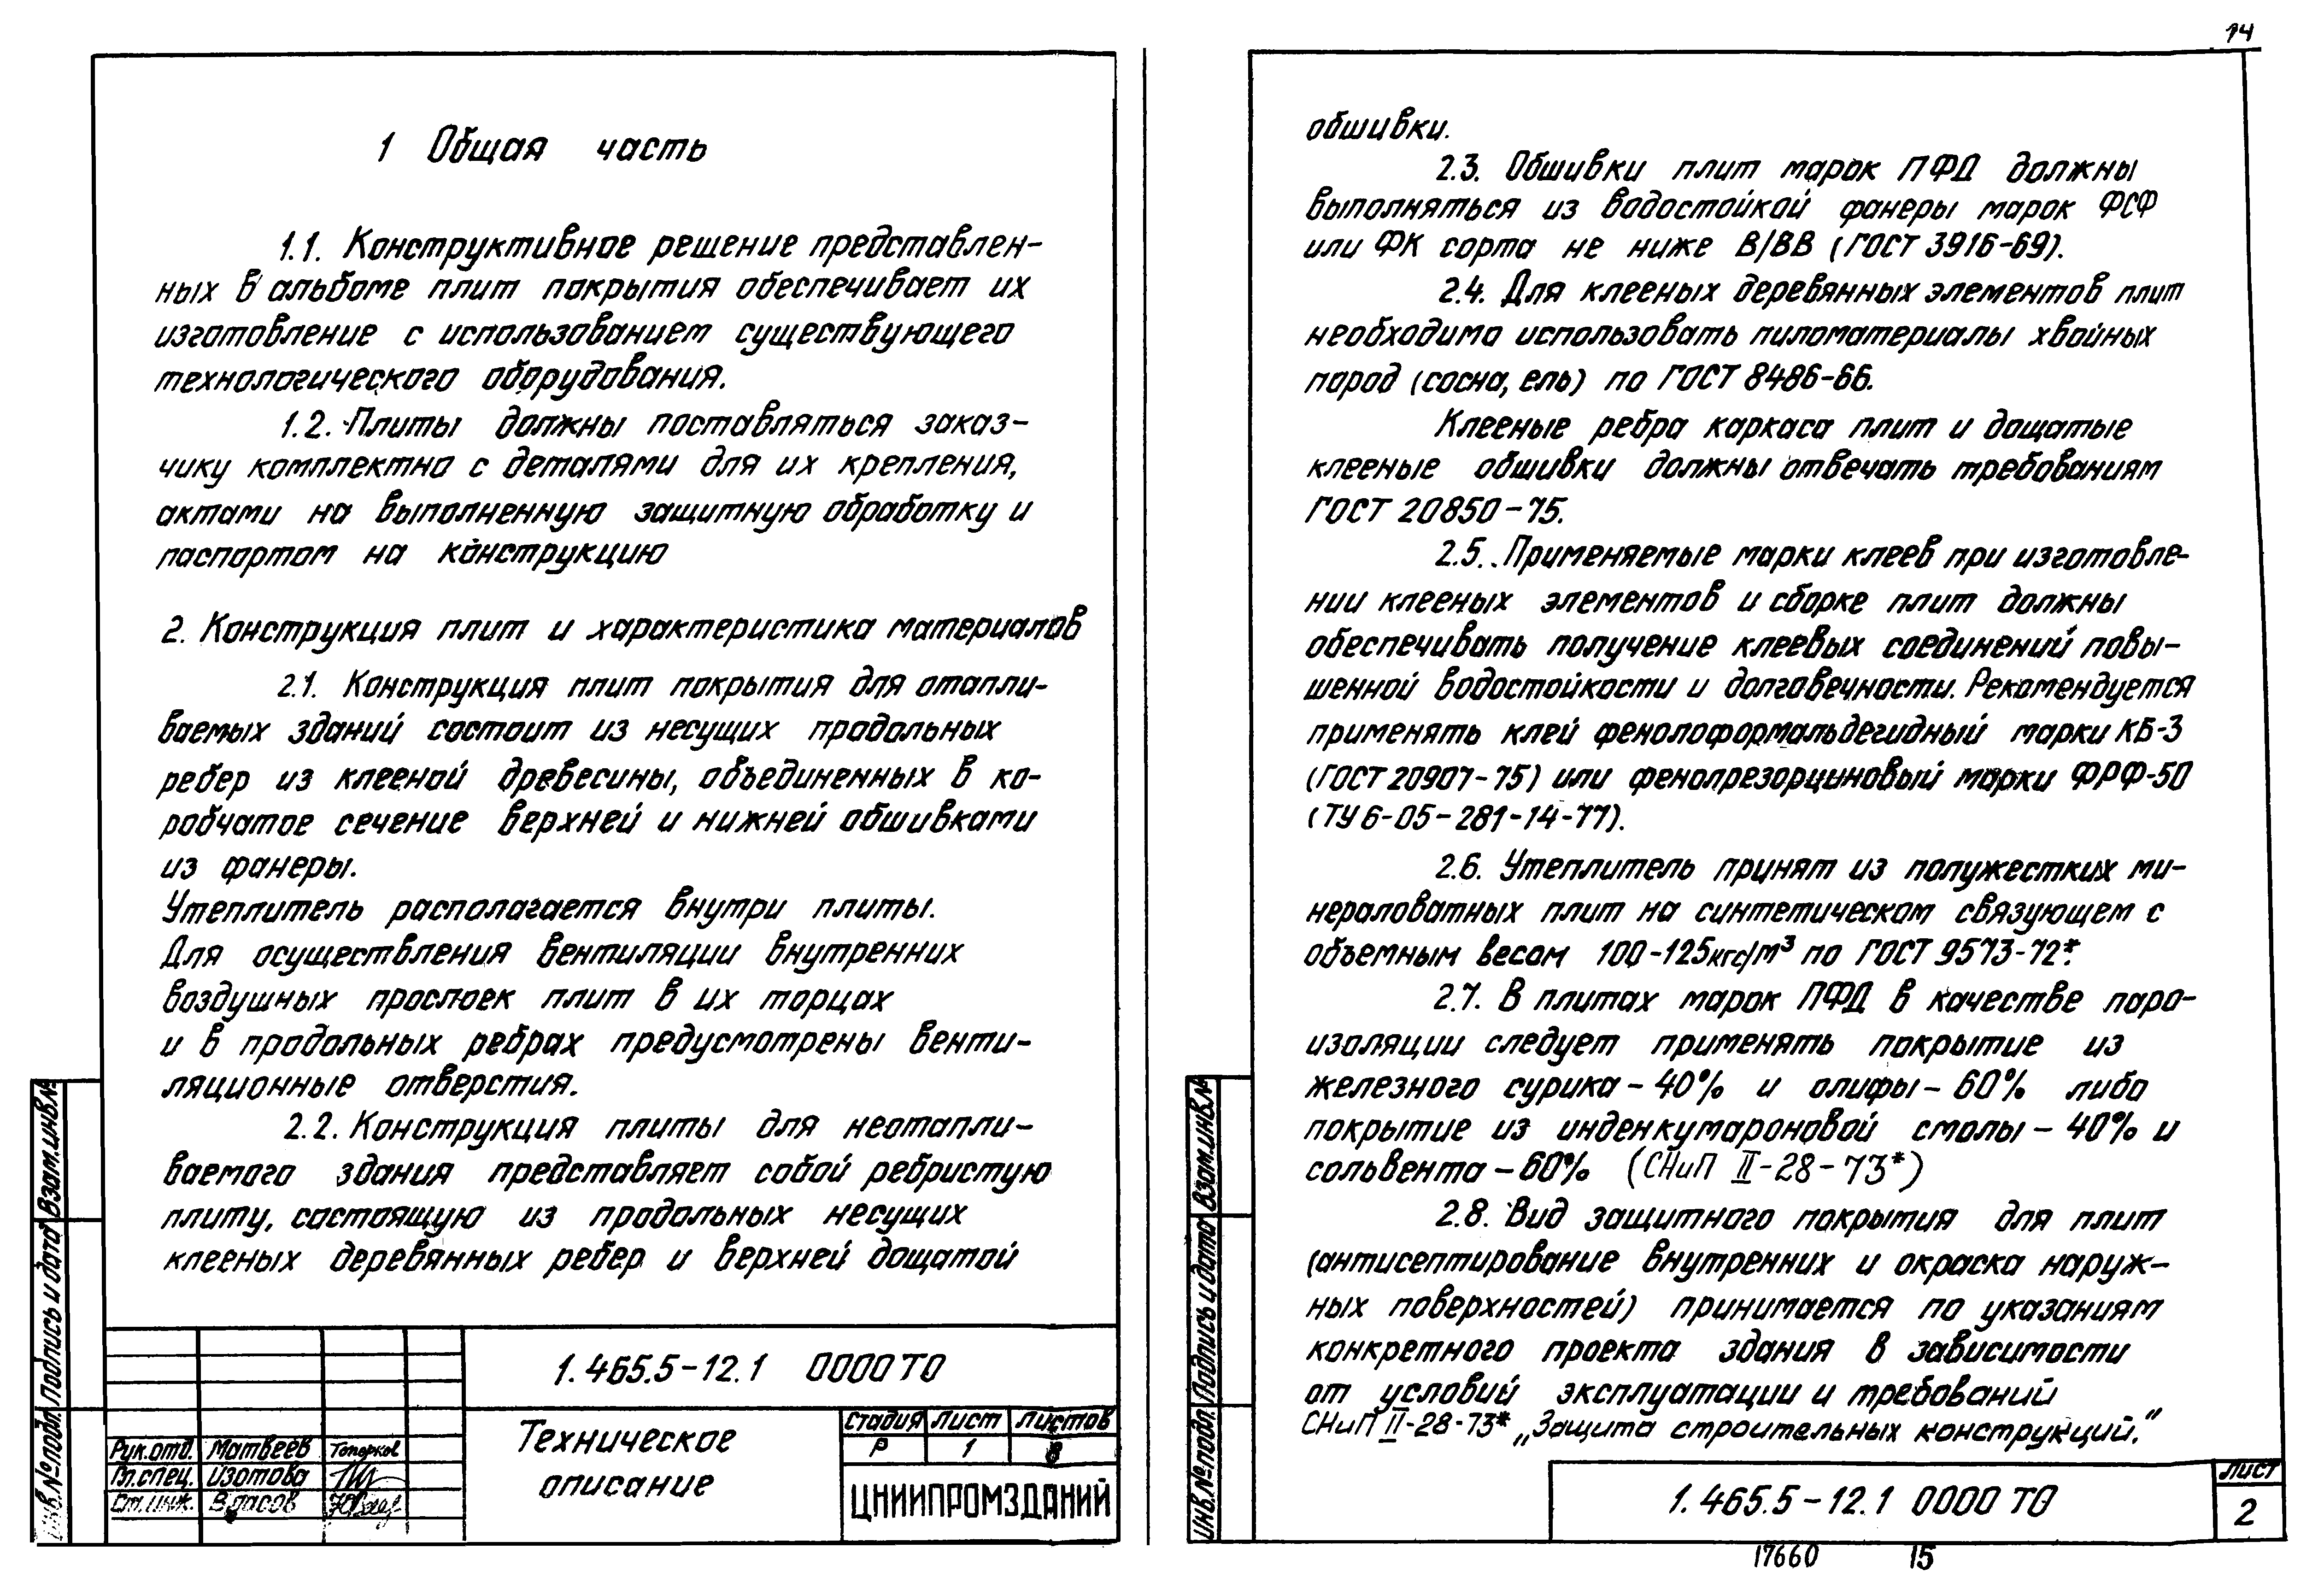 1 Общая часть
1.1. Конструктивное решение представлен-
ных в альбоме плит покрытия обеспечивает их
изготовление с использованием существующего
технологического оборудования.
1.2. Плиты должны поставляться заказ-
чику комплектно с деталями для их крепления,
актами на выполненную защитную обработку и
паспортом на конструкцию
2. Конструкция плит и характеристика материалов
2.1. Конструкция плит покрытия для отапли-
ваемых зданий состоит из несущих продольных
ребер из клееной древесины, объединенных в ко-
робчатое сечение верхней и нижней обшивками
из фанеры.
Утеплитель располагается внутри плиты.
Для осуществления вентиляции внутренних
воздушных прослоек плит в их торцах
и в продольных ребрах предусмотрены венти-
ляционные отверстия.
2.2. Конструкция плиты для неотапли-
ваемого здания представляет собой ребристую
плиту, состоящую из продольных несущих
клееных деревянных ребер и верхней дощатой
Взам.инв.№
Подпись и дата
Инв.№подл.
1.465.5-12.1 0000ТО
Рук.отд. Матвеев Топорков
Гл.спец. Изотова
Ст.инж. Власов
Техническое
описание
стадия лист листов
Р 1 8
ЦНИИПРОМЗДАНИЙ
14
обшивки.
2.3. Обшивки плит марок ПФД должны
выполняться из водостойкой фанеры марок ФСФ
или ФК сорта не ниже В/ВВ (ГОСТ 3916-69).
2.4. Для клееных деревянных элементов плит
необходимо использовать пиломатериалы хвойных
пород (сосна, ель) по ГОСТ 8486-66.
Клееные ребра каркаса плит и дощатые
клееные обшивки должны отвечать требованиям
ГОСТ 20850-75.
2.5. Применяемые марки клеев при изготовле-
нии клееных элементов и сборке плит должны
обеспечивать получение клеевых соединений повы-
шенной водостойкости и долговечности. Рекомендуется
применять клей фенолоформальдегидный марки КБ-3
(ГОСТ 20907-75) или фенолрезорциновый марки ФРФ-50
(ТУ 6-05-281-14-77).
2.6. Утеплитель принят из полужестких ми-
нераловатных плит на синтетическом связующем с
объемным весом 100-125кгс/м³ по ГОСТ 9573-72*.
2.7. В плитах марок ПФД в качестве паро-
изоляции следует применять покрытие из
железного сурика-40% и олифы-60% либо
покрытие из инденкумароновой смолы-40% и
сольвента-60% (СНиП II-28-73*)
2.8. Вид защитного покрытия для плит
(антисептирование внутренних и окраска наруж-
ных поверхностей) принимается по указаниям
конкретного проекта здания в зависимости
от условий эксплуатации и требований
СНиП II-28-73* „Защита строительных конструкций."
Взам.инв.№
Подпись и дата
Инв.№подл.
1.465.5-12.1 0000 ТО
лист
2
17660 15